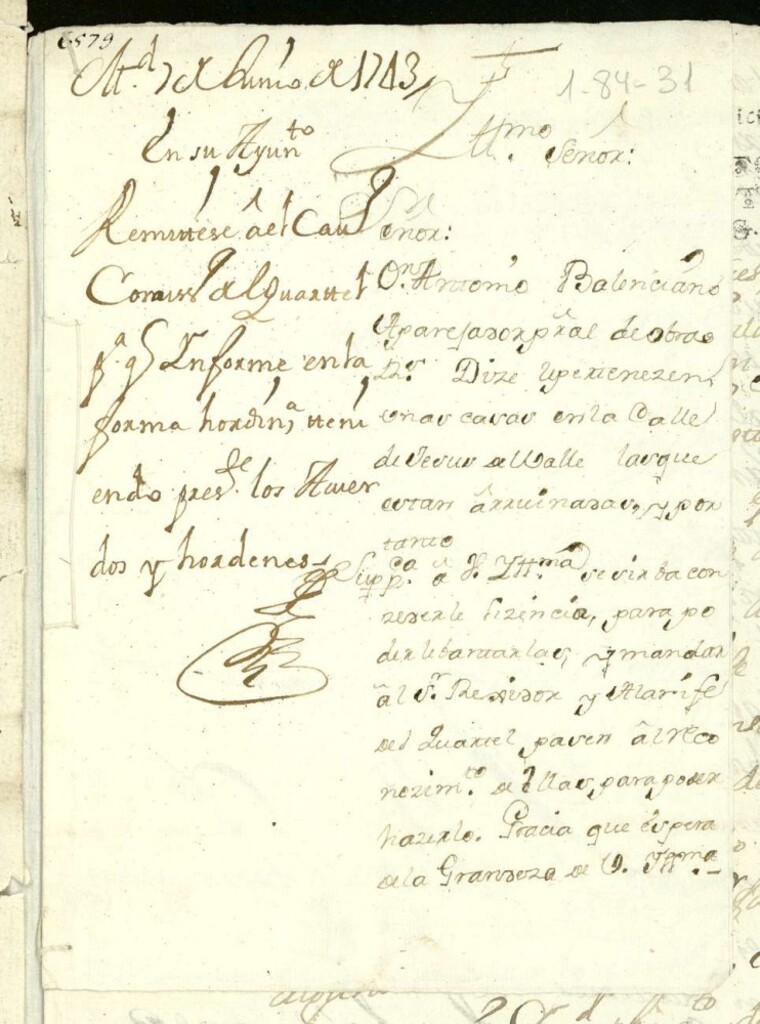 6579
1-84-31
M.d 7 de Junio de 1743
En su Ayunto
Remittese a el Cavo
Comisso del Quarttel
p.a q Informe en la
forma hordin.a tteni
endo pres.te los Acuer
dos y hordenes
Yll.mo Señor:
Señor:
D.n Antonio Balenciano
Aparejador pral de obras
R.s Dize lepertenezen
unas casas en la Calle
de Jesus del Valle las que
estan arruinadas, y por
tanto
Supp.ca a V. Yll.ma se sirba con
zederle lizencia, para po
der lebantarlas, y mandar
al S.r Rexidor y Alarife
del Quartel pasen al reco
nozim.to de ellas, para poder
hazerlo. Gracia que espera
de la Grandeza de V. Yll.ma